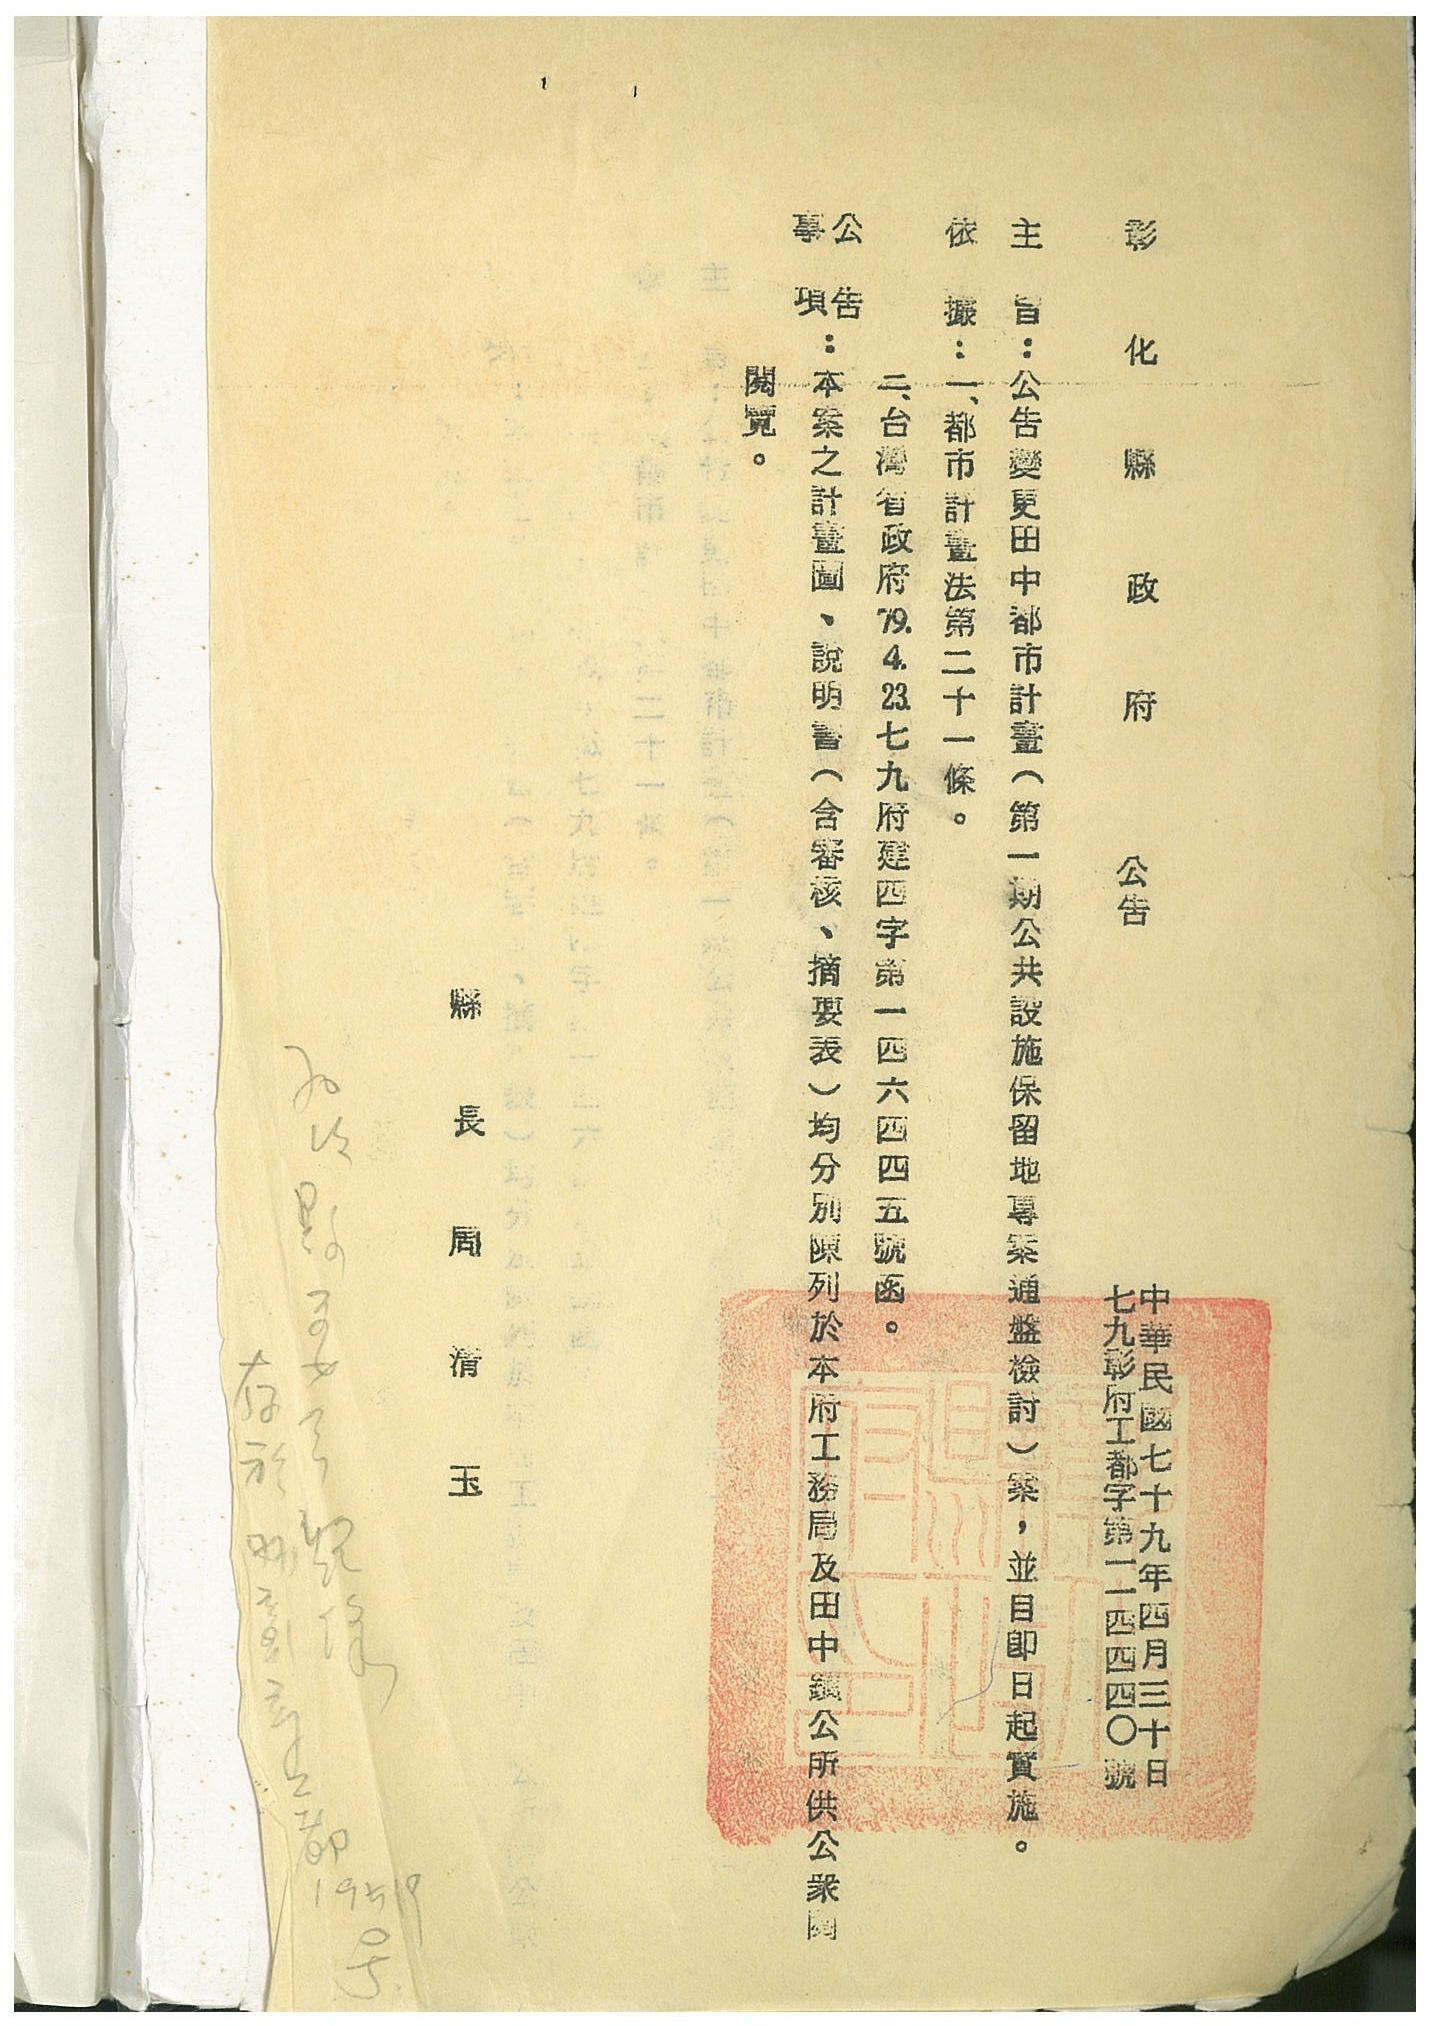 彰化縣政府 公告
中華民國七十九年四月三十日
七九彰府工都字第一一四四四〇號
主旨：公告變更田中都市計畫（第一期公共設施保留地專案通盤檢討）案，並自即日起實施。
依據：一、都市計畫法第二十一條。
二、台灣省政府79.4.23.七九府建四字第一四六四四五號函。
公告事項：本案之計畫圖、說明書（含審核、摘要表）均分別陳列於本府工務局及田中鎮公所供公衆閱
閱覽。
縣長周清玉